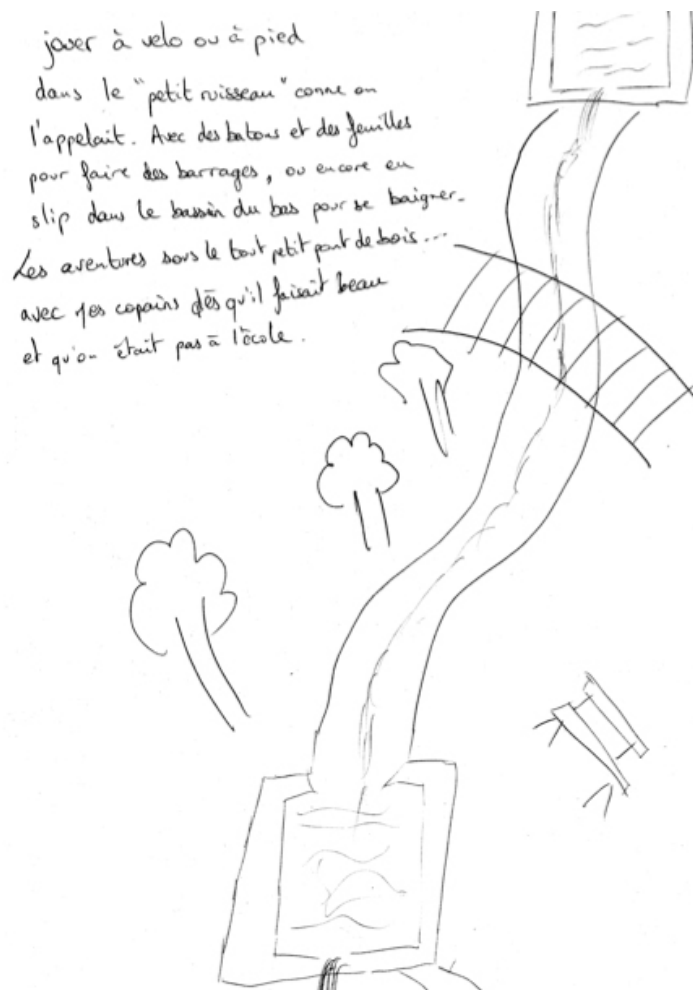 jouer à velo ou à pied
dans le "petit ruisseau" comme on
l'appelait. Avec des batons et des feuilles
pour faire des barrages, ou encore en
slip dans le bassin du bas pour se baigner.
Les aventures sous le tout petit pont de bois...
avec mes copains dès qu'il faisait beau
et qu'on était pas à l'école.